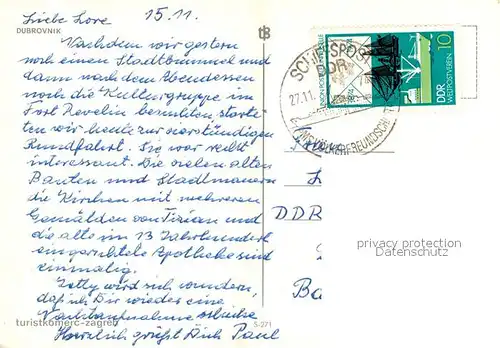 Liebe Lore 15.11.
DUBROVNIK
Nachdem wir gestern
noch einen Stadtbummel und
dann nach dem Abendessen
noch die Kulturgruppe im
Fort Revelin besuchten starte-
ten wir heute zur vierstündigen
Rundfahrt. Sie war recht
interessant. Die vielen alten
Bauten und Stadtmauern
die Kirchen mit mehreren
Gemälden von Tizian und
die alte im 13 Jahrhundert
eingerichtete Apotheke sind
einmalig.
Lotty wird sich wundern
daß ich Dir wieder eine
schicke
Herzlich grüßt Dich Paul
turistkomerc-zagreb
S-271
SCHIFFSPOST
DDR
27.11.
VÖLKERFREUNDSCHAFT
1874
10
DDR
WELTPOSTVEREIN
DDR
Ba
privacy protection
Datenschutz